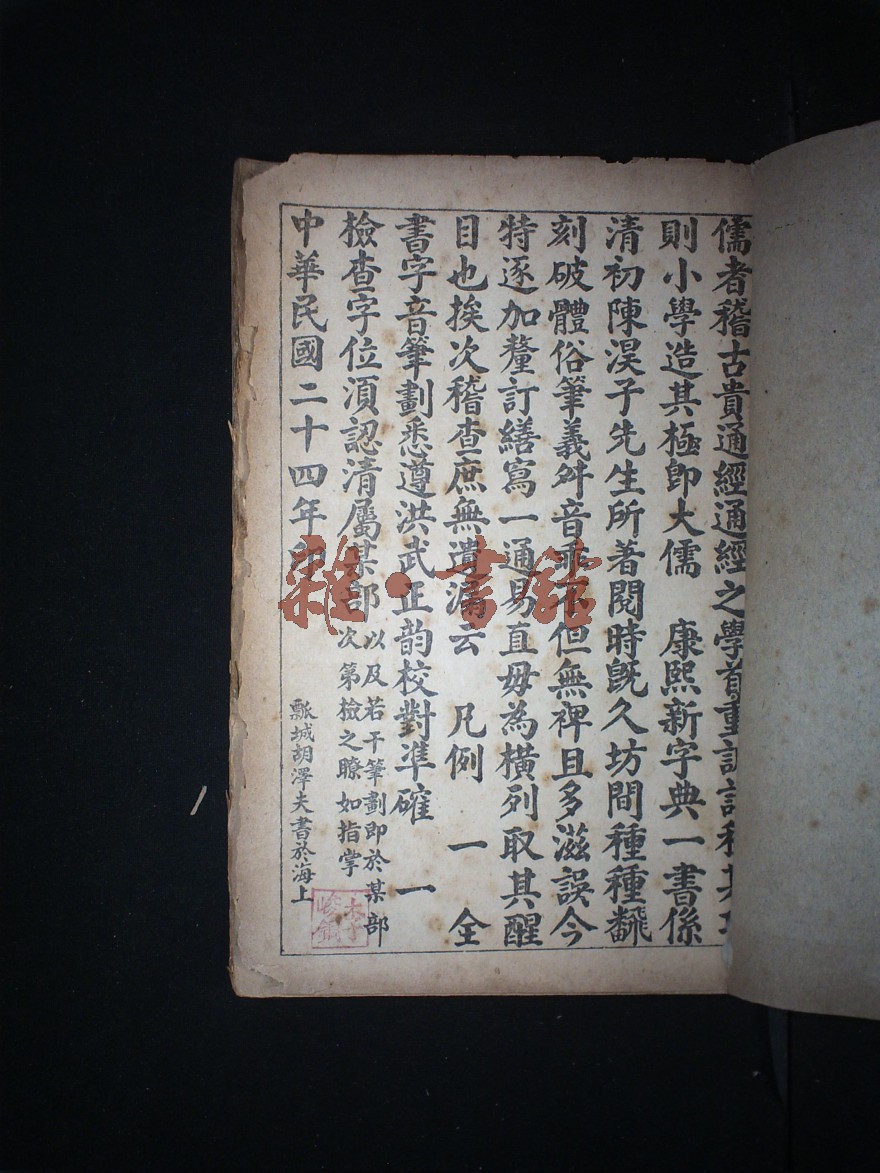 儒者稽古貴通經通經之學首重訓詁
則小學造其極即大儒　康熙新字典一書係
清初陳淏子先生所著閱時既久坊間種種飜
刻破體俗筆義舛音乖不但無裨且多滋誤今
特逐加釐訂繕寫一通易直毋為橫列取其醒
目也挨次稽查庶無遺漏云　凡例　一　全
書字音筆劃悉遵洪武正韵校對準確　一
檢查字位須認清屬某部
以及若干筆劃即於某部
次第檢之瞭如指掌
中華民國二十四年印
瓢城胡澤夫書於海上
李
峻銅
雜·書館